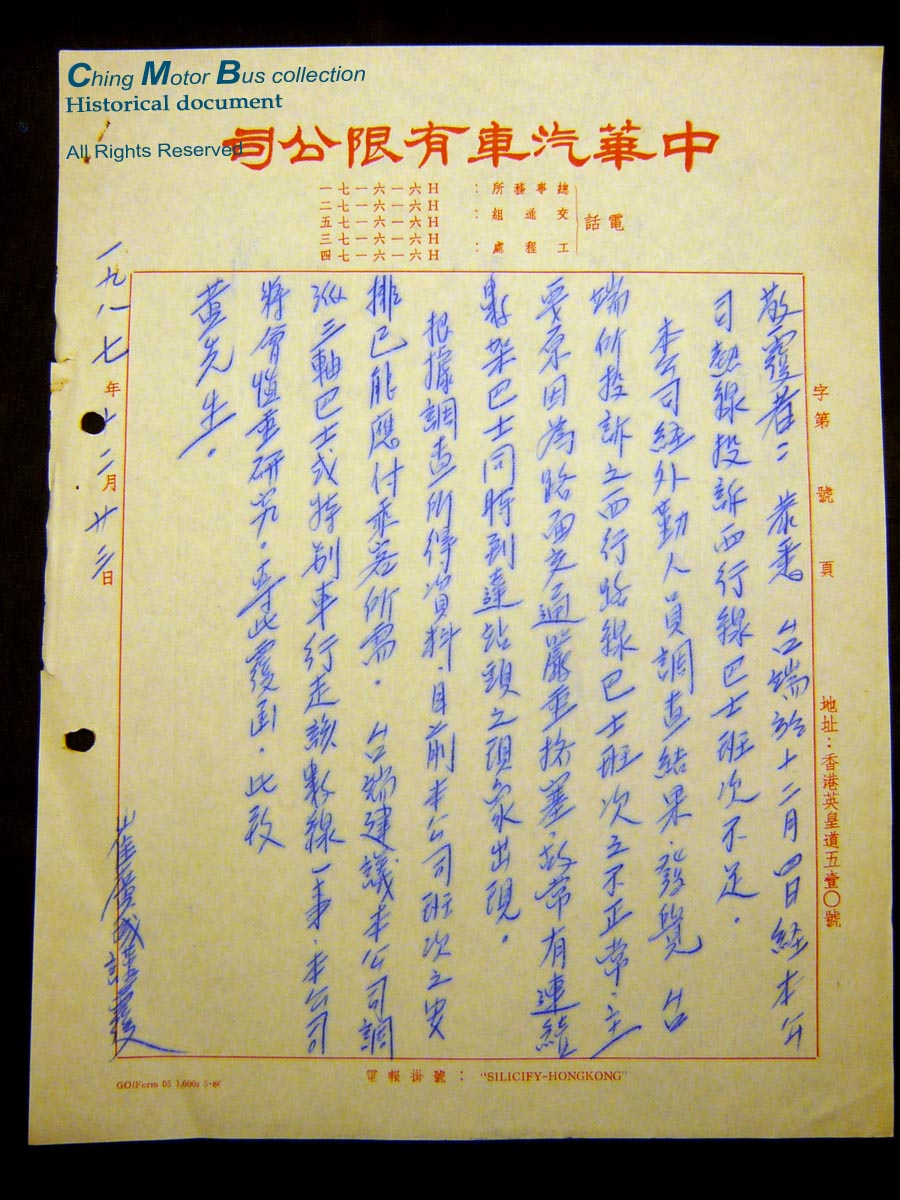 Ching Motor Bus collection
Historical document
All Rights Reserved
中華汽車有限公司
電話
總事務所：H六一六一七一
H六一六一七二
交通組：H六一六一七五
H六一六一七三
工程處：H六一六一七四
字第 號 頁
地址：香港英皇道五壹〇號
敬覆者：恭悉 台端於十二月四日經本公
司熱線投訴西行線巴士班次不足。
本公司經外勤人員調查結果，發覺 台
端所投訴之西行路線巴士班次之不正常，主
要原因為路面交通嚴重擠塞，故常有連續
數架巴士同時到達站頭之現象出現。
根據調查所得資料，目前本公司班次之安
排已能應付乘客所需。 台端建議本公司調
派三軸巴士或特別車行走該數線一事，本公司
將會慎重研究。專此覆函。此致
黃先生。
崔廣成謹覆
一九八七年十二月廿三日
電報掛號："SILICIFY-HONGKONG"
GO/Form 05 1,000s 5-86